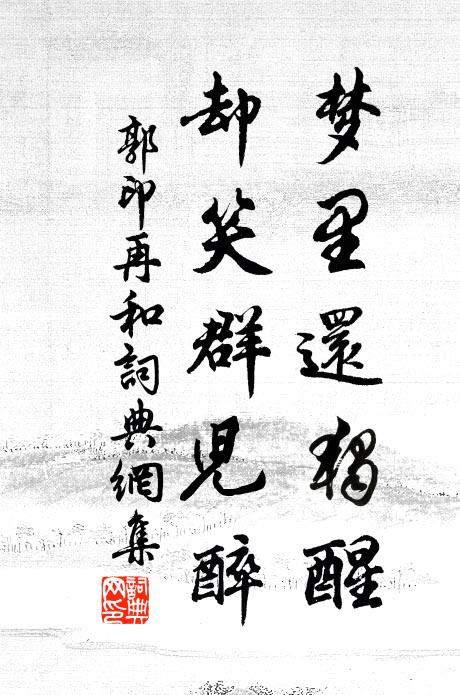 梦里還獨醒
却笑群児醉
郭印再和詞典網集
詞典
网印